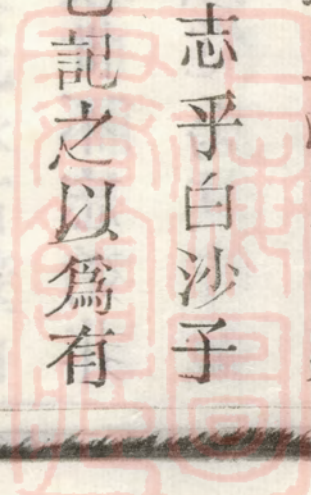 志乎白沙子
記之以為有